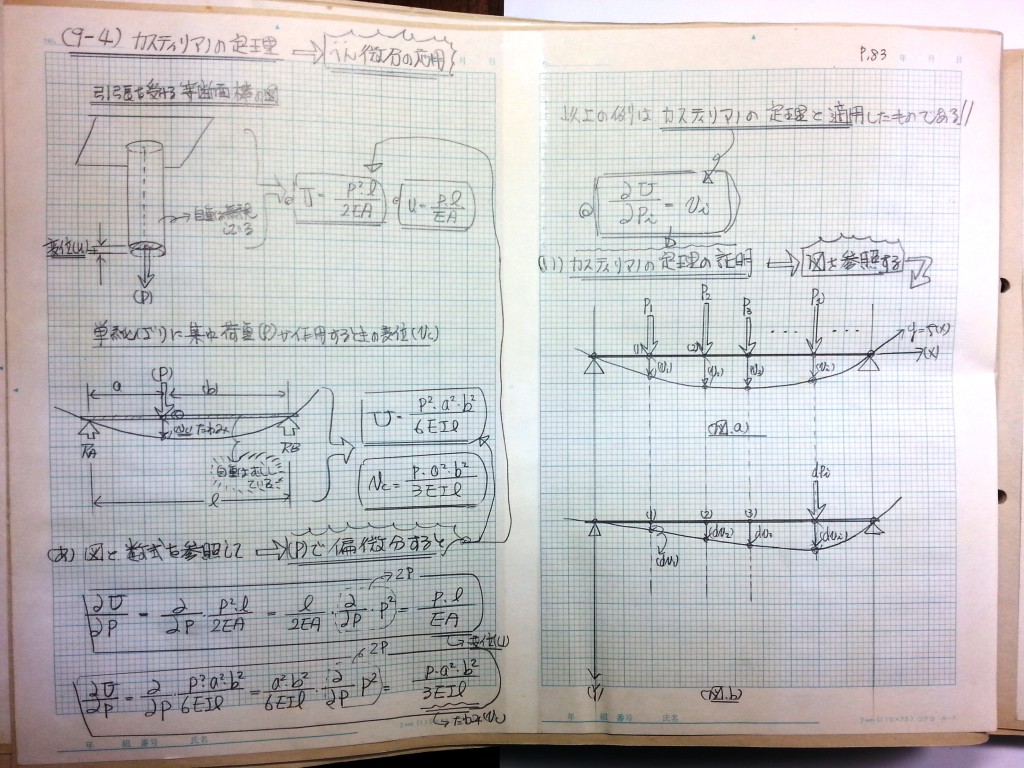 (9-4) カスティリアノの定理 ⇒ 偏微分の応用
引張を受ける等断面棒の図
U = P²·l / 2EA
u = P·l / EA
自重は無視している
変位(u)
(P)
単純ばりに集中荷重(P)が作用するときの変位(Vc)
(P)
a
(b)
Vc たわみ
RA
RB
自重はむししている
l
U = P²·a²·b² / 6EIl
Vc = P·a²·b² / 3EIl
(あ) 図と数式を参照して ⇒ (P)で偏微分すると
→ 2P
∂U/∂P = ∂/∂P · P²·l / 2EA = l / 2EA · ∂/∂P · P² = P·l / EA
→ 変位(u)
2P
∂U/∂P = ∂/∂P · P²·a²·b² / 6EIl = a²·b² / 6EIl · ∂/∂P P² = P·a²·b² / 3EIl
→ たわみ(Vc)
年 組 番号 氏名
P.83
年 月 日
以上の例はカスティリアノの定理を適用したものである//
∂U/∂Pi = Vi
(1) カスティリアノの定理の証明 ⇒ 図を参照する
P1 P2 P3 ‥‥ Pi ‥‥
y=f(x)
(x)
(1) (2)
(V1) (V2) (V3) (Vi)
(図.a)
dPi
(1) (2) (3)
(dV1) (dV2) (dVi)
(Y)
(図.b)
年 組 番号 氏名